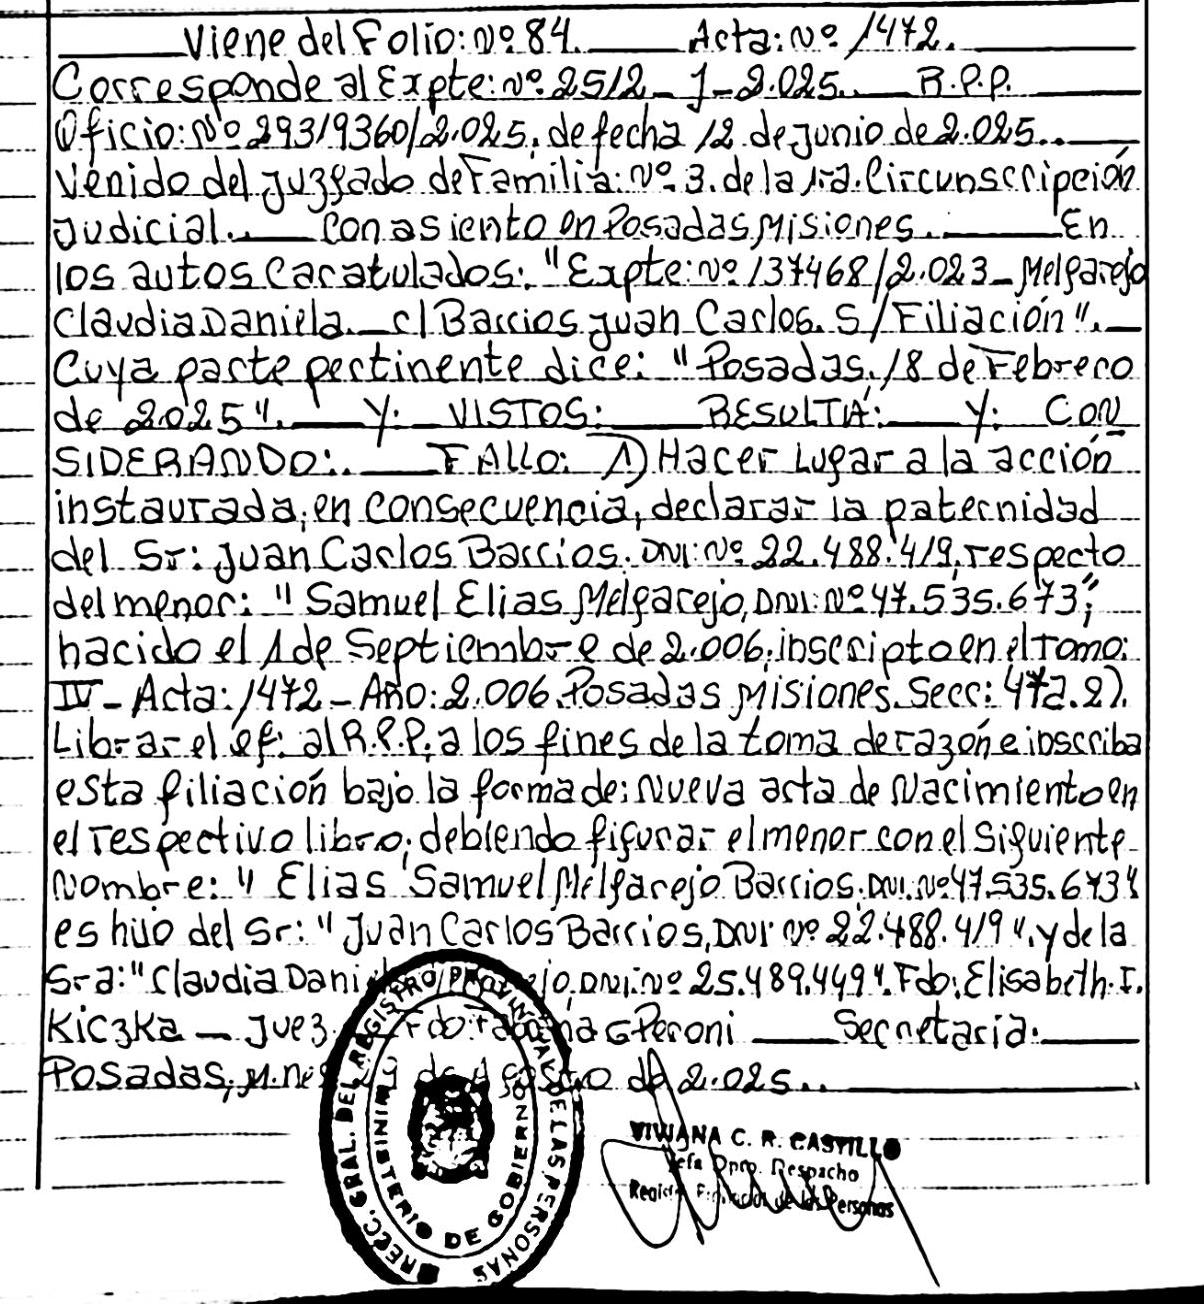 Viene del Folio: Nº 84. Acta: Nº 1472.
Corresponde al Expte: Nº 2512 - J - 2.025. R.P.P.
Oficio: Nº 29319360/2.025, de fecha 12 de Junio de 2.025.
Venido del Juzgado de Familia: Nº 3. de la 1ra. Circunscripción
Judicial. Con asiento en Posadas Misiones. En
los autos Caratulados: "Expte: Nº 137468/2.023 - Melgarejo
Claudia Daniela. c/ Barrios Juan Carlos. S/Filiación".
Cuya parte pertinente dice: "Posadas, 18 de Febrero
de 2.025". Y: VISTOS: RESULTA: Y: CON
SIDERANDO: FALLO: 1) Hacer Lugar a la acción
instaurada, en consecuencia, declarar la paternidad
del Sr: Juan Carlos Barrios. DNI: Nº 22.488.419, respecto
del menor: "Samuel Elias Melgarejo, DNI: Nº 47.535.673",
nacido el 1 de Septiembre de 2.006, inscripto en el Tomo:
IV - Acta: 1472 - Año: 2.006. Posadas Misiones. Secc: 472. 2).
Librar el of. al R.P.P, a los fines de la toma de razón e inscriba
esta filiación bajo la forma de: Nueva acta de Nacimiento en
el respectivo libro, debiendo figurar el menor con el Siguiente
Nombre: "Elias Samuel Melgarejo Barrios. DNI. Nº 47.535.673"
es hijo del Sr: "Juan Carlos Barrios, DNI Nº 22.488.419", y de la
Sra: "Claudia Dani jo, DNI: Nº 25.489.449". Fdo: Elisabeth. I.
Kiczka - Juez. Fdo: G Peroni Secretaria.
Posadas, de Agosto de 2.025.
DIRECC. GRAL. DEL REGISTRO PROVINCIAL DE LAS PERSONAS
MINISTERIO DE GOBIERNO
VIVIANA C. R. CASTILLO
Jefa Dpto. Despacho
de las Personas